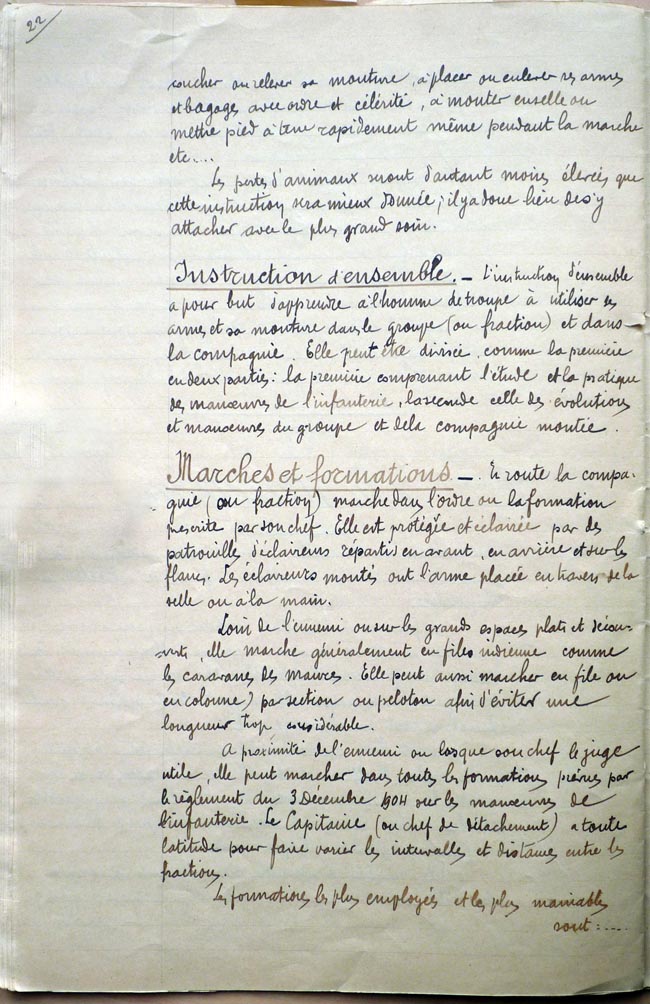 22
coucher ou relever sa monture, à placer ou enlever ses armes
et bagages avec ordre et célérité, à monter en selle ou
mettre pied à terre rapidement même pendant la marche
etc....
Les pertes d'animaux seront d'autant moins élevées que
cette instruction sera mieux donnée; il y a donc lieu de s'y
attacher avec le plus grand soin.
Instruction d'ensemble. — L'instruction d'ensemble
a pour but d'apprendre à l'homme de troupe à utiliser ses
armes et sa monture dans le groupe (ou fraction) et dans
la compagnie. Elle peut être divisée, comme la première
en deux parties: la première comprenant l'étude et la pratique
des manœuvres de l'infanterie, la seconde celle des évolutions
et manœuvres du groupe et de la compagnie montée.
Marches et formations — En route la compa-
gnie (ou fraction) marche dans l'ordre ou la formation
prescrite par son chef. Elle est protégée et éclairée par des
patrouilles d'éclaireurs répartis en avant, en arrière et sur les
flancs. Les éclaireurs montés ont l'arme placée en travers de la
selle ou à la main.
Loin de l'ennemi ou sur les grands espaces plats et décou-
-verts, elle marche généralement en files indienne comme
les caravanes des maures. Elle peut aussi marcher en file ou
en colonne) par section ou peloton afin d'éviter une
longueur trop considérable.
A proximité de l'ennemi ou losque son chef le juge
utile, elle peut marcher dans toutes les formations prévues par
le règlement du 3 Décembre 1904 sur les manœuvres de
l'infanterie. Le Capitaine (ou chef de détachement) a toute
latitude pour faire varier les intervalles et distances entre les
fractions.
Les formations les plus employés et les plus maniables
sont:....